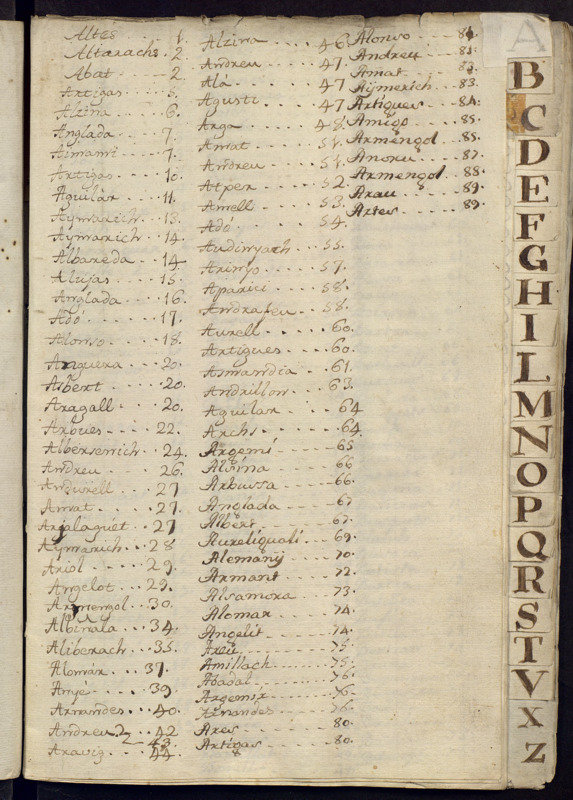 Altés . . . . 1.
Altarachs. 2.
Abat . . . . 2
Artigas . . . 5.
Alzina . . . 6.
Anglada . . 7.
Aimami . . 7.
Artigas . . . 10.
Aguilàr . . 11.
Aymarich . . 13.
Aymarich . . 14.
Albareda . . 14.
Alujas . . . 15.
Anglada . . 16.
Adó . . . 17.
Alonso . . . 18.
Anguera . . . 20.
Asbert . . . . 20.
Aragall . . . 20.
Arbues . . . . 22.
Andreu . . . 26.
Andurell . . 27
Amat . . . . 27.
Argalaguet . . 27
Aymarich . . . 28
Ariol . . . 29.
Angelot . . 29.
Armengol . . 30.
Albiñala . . . 34.
Aliberach . . 35.
Alomár . . 37.
Anyé . . . 39
Arnandes . . 40.
Andreu 2 . . 42
43.
Aravig . . . 44
Alzina . . . . 46.
Andreu . . . . 47.
Alá . . . . 47
Agusti . . . . 47
Arga . . . . 48.
Amat . . . . 51.
Andreu . . . 51.
Atper . . . . 52.
Amell . . . . 53.
Adó . . . . 54.
Audinyach . . . 55.
Arinyo . . . . 57.
Aparici . . . . 58.
Andrafeu . . . 58.
Aurell . . . . 60.
Artigues . . . . 60.
Asmandia . . . 61.
Andrillon . . . 63.
Aguilar . . . 64
Archs . . . . 64.
Argemí . . . . 65
Alsina . . . . 66
Arbussa . . . . 66.
Anglada . . . . 67
Albert . . . . 67.
Aureliguali . . . 69.
Alemanÿ . . . 70.
Armant . . . . 72.
Alsamora . . . 73.
Alomar . . . . 74.
Angelit . . . . 74.
Amillach . . . . 75.
Abadal . . . . 76.
Argemir . . . 76.
Arnandes . . . 76.
Ares . . . . 80.
Artigas . . . . 80.
Alonso . . . . 81.
Andreu . . . 81.
Amat . . . . 83.
Aÿmerich . . . 83.
Artigues . . . 84.
Amigo . . . . 85.
Armengol . . . 85.
Armengol . . 88.
Arau . . . . 89.
Artes . . . . 89.
A
B
C
D
E
F
G
H
I
L
M
N
O
P
Q
R
S
T
V
X
Z